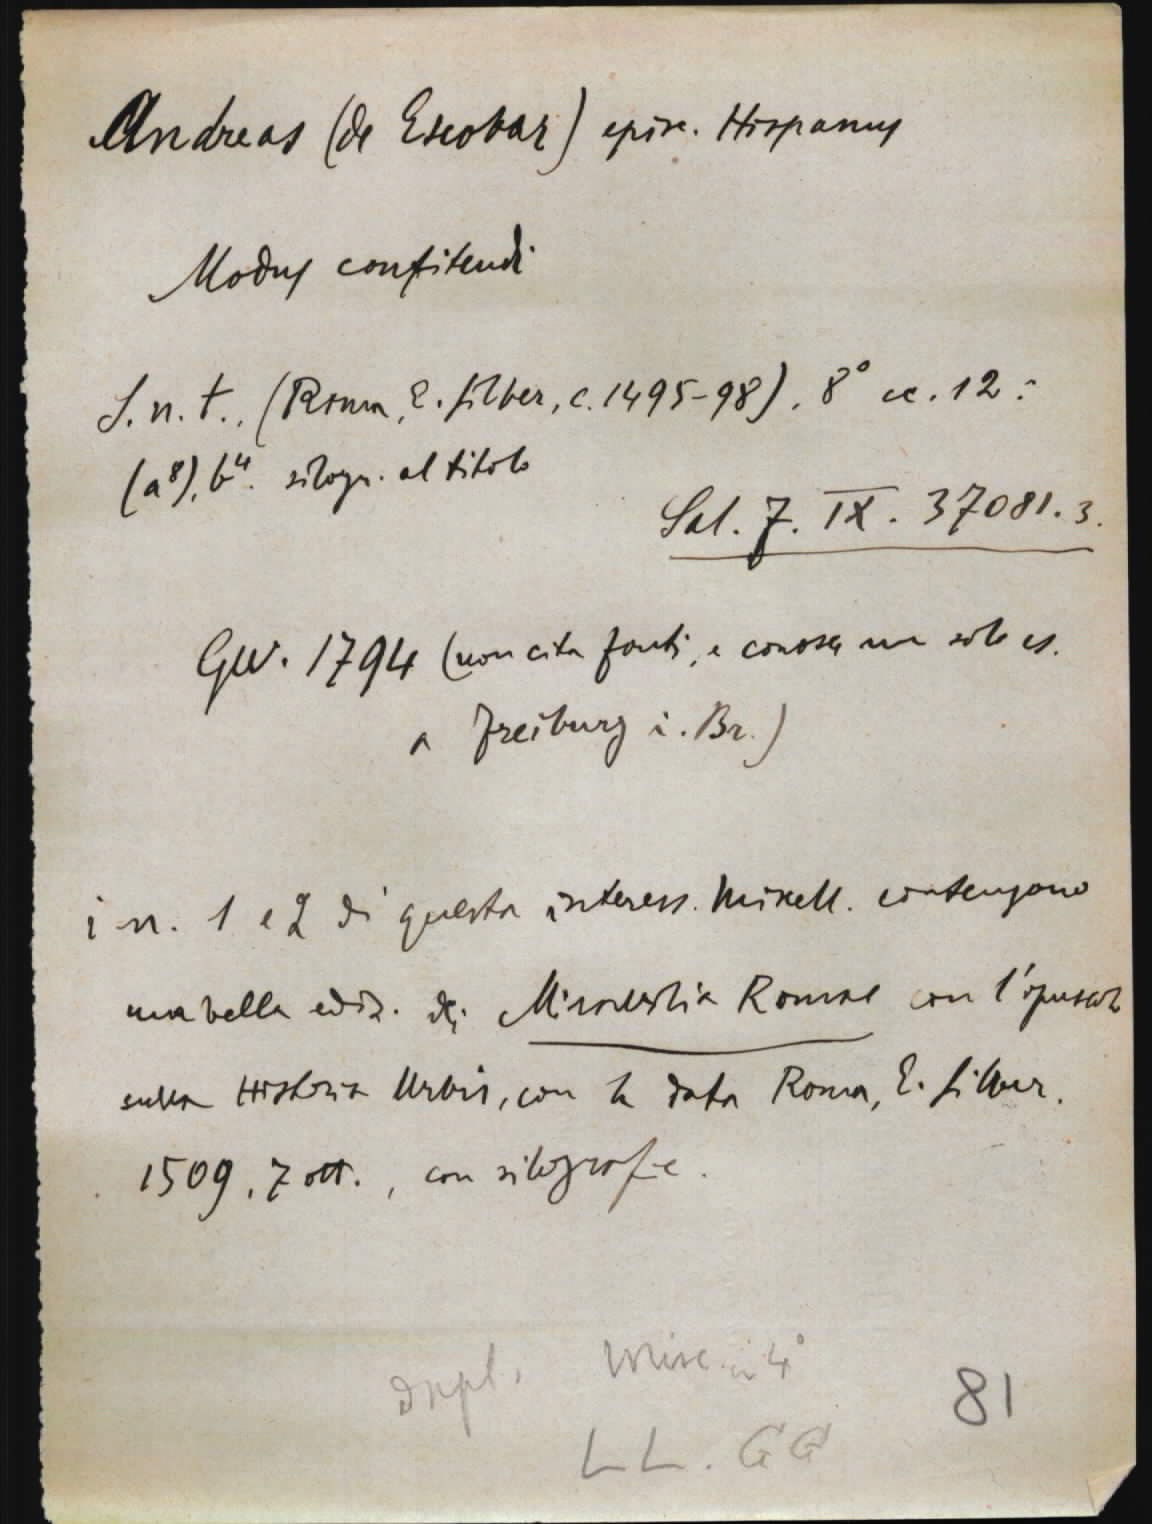 Andreas (de Escobar) episc. Hispanus
Modus confitendi
S.n.t., (Roma, E. Silber, c. 1495-98), 8° cc. 12:
(a⁸), b⁴. silogr. al titolo
Sal. 7. IX. 37081.3.
GW. 1794 (non cita fonti, e conosce un solo es.
a Freiburg i. Br.)
i n. 1 e 2 di questa interess. miscell. contengono
una bella ediz. di Mirabilia Romae con l'opuscolo
sulla Historia Urbis, con la data Roma, E. Silber.
1509, 7 ott., con silografie.
dupl. Misc. in 4°
81
LL. GG